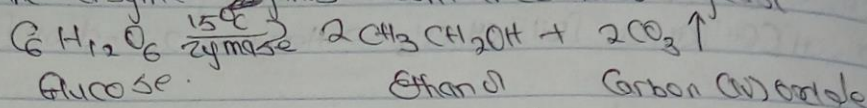 C6H12O6 15°C zymase 2CH3CH2OH + 2CO3↑
Glucose. Ethanol Carbon (IV) oxide